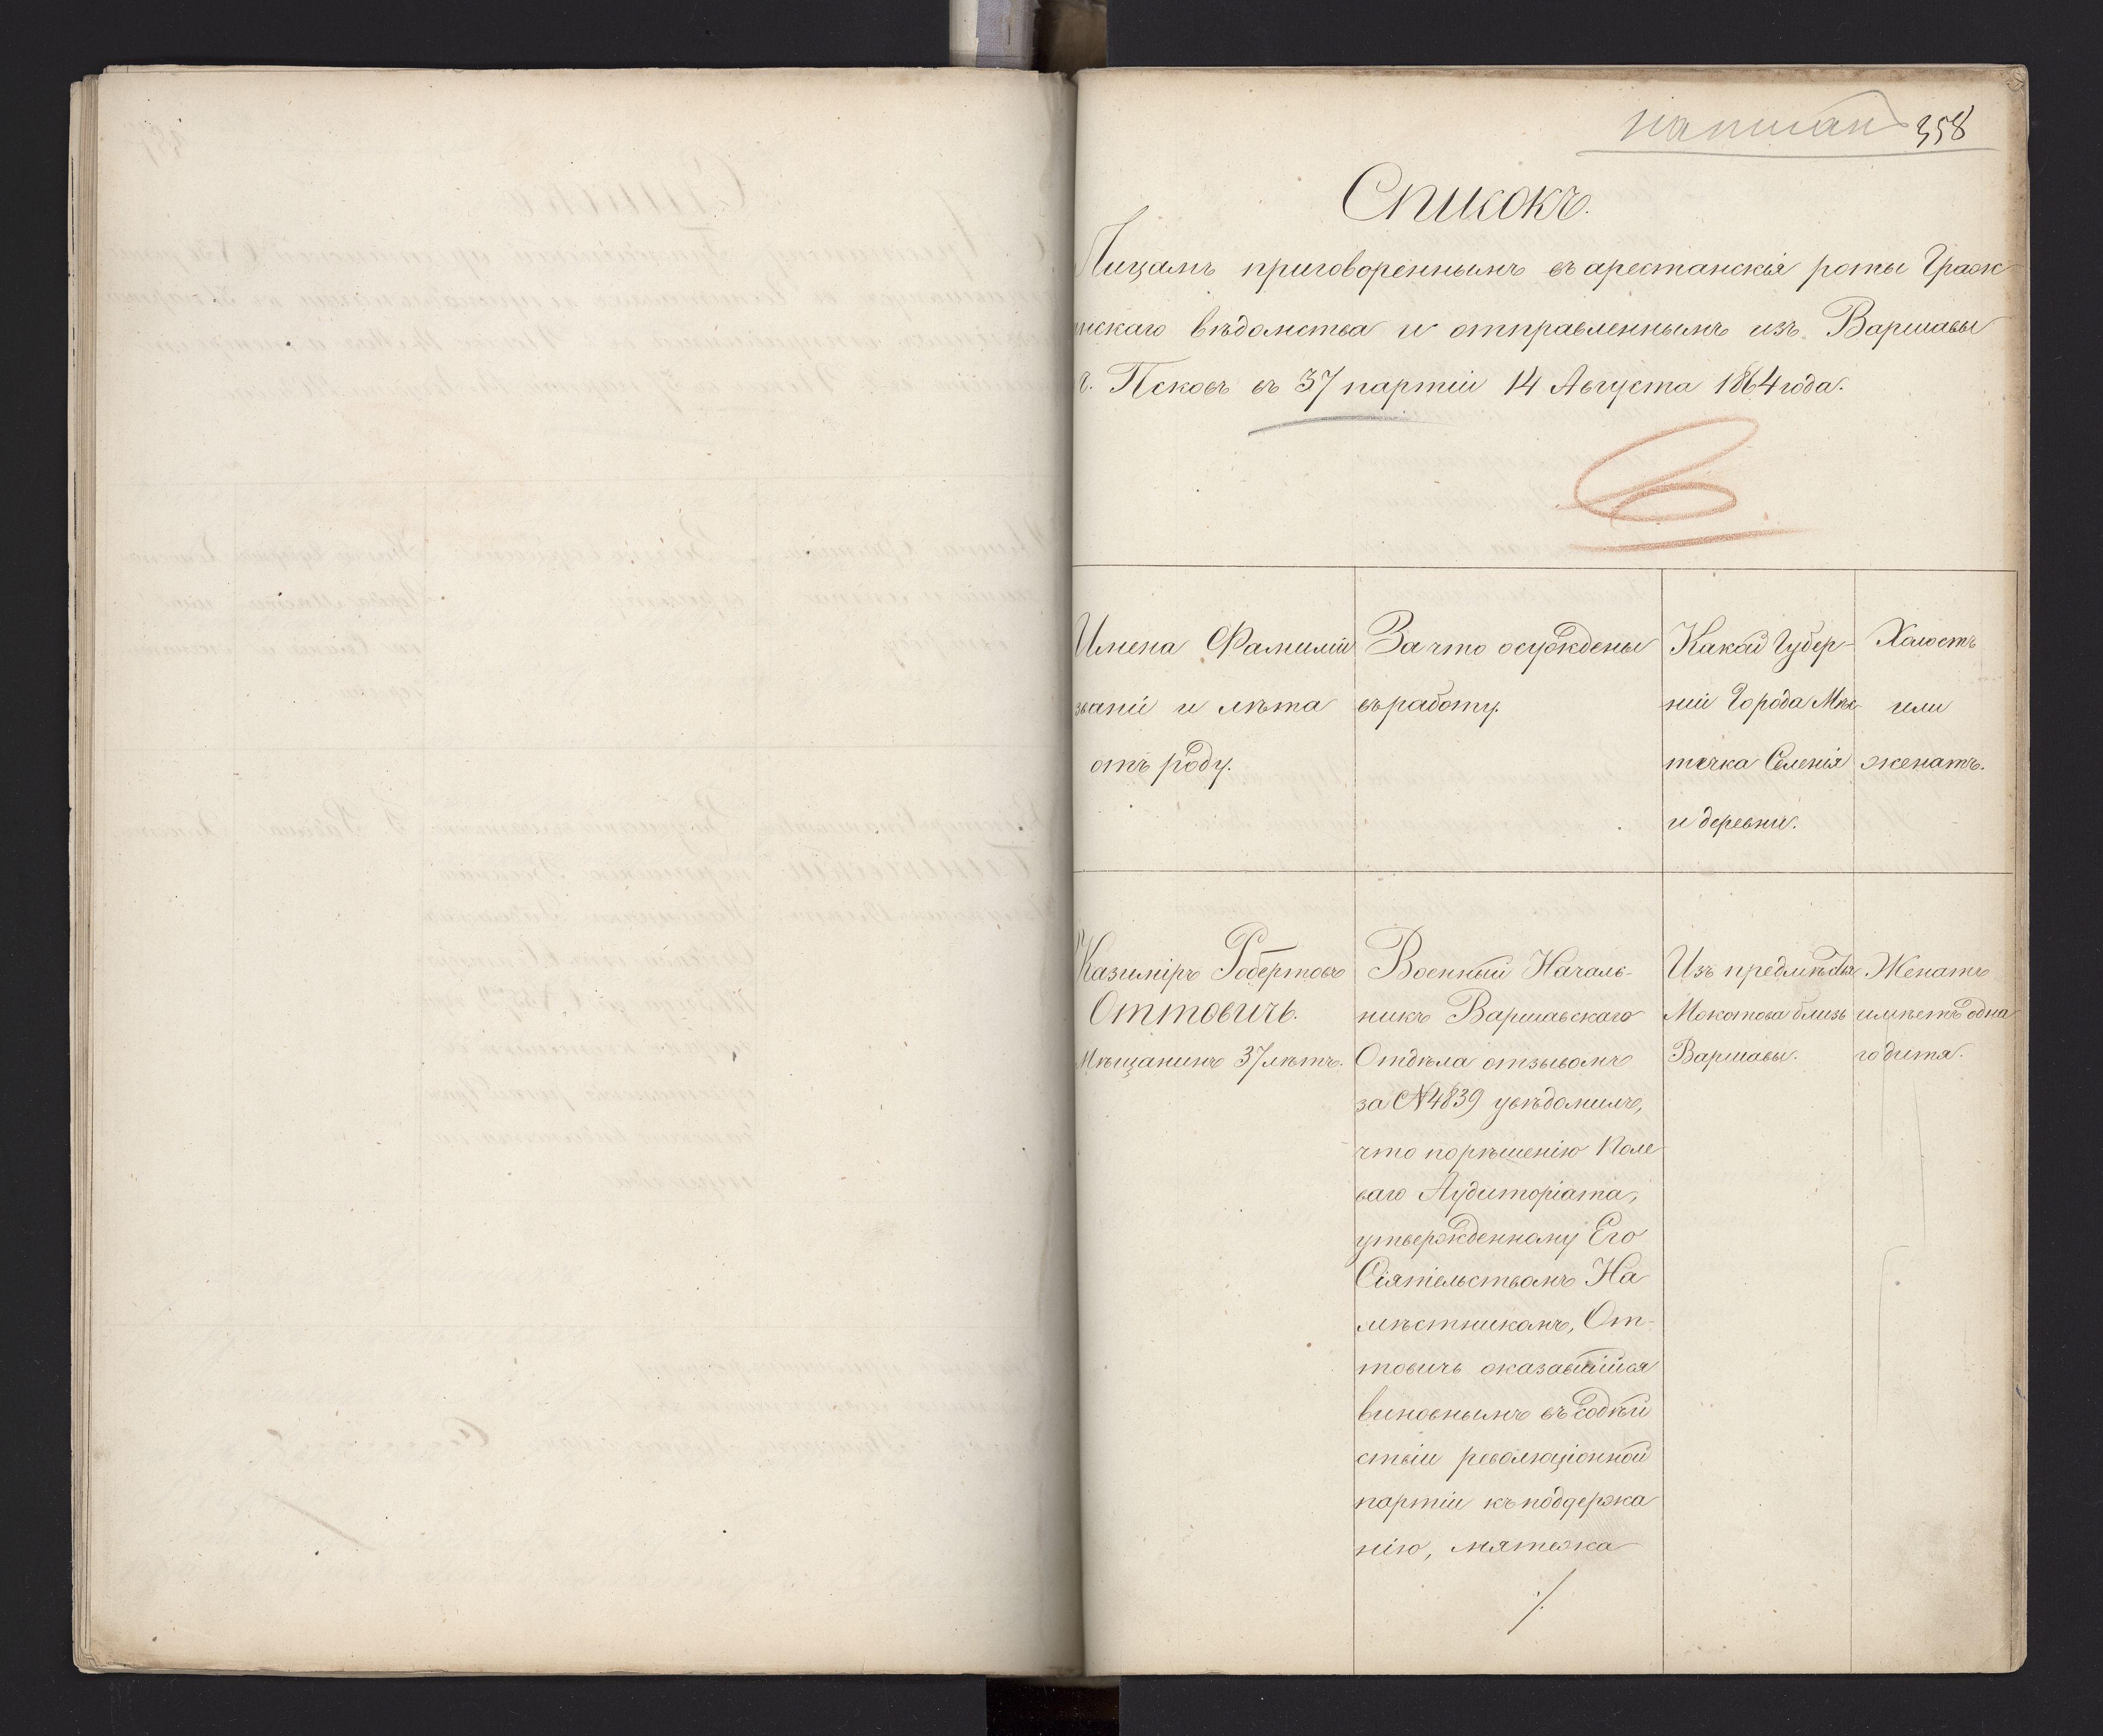 написанъ 358
Списокъ.
Лицамъ приговореннымъ въ арестанскія роты Граж
нскаго вѣдомства и отправленнымъ изъ Варшавы
г. Псковъ въ 37 партіи 14 Августа 1864 года.
Имена Фамиліи
званіи и лѣта
отъ роду.
За что осуждены
въ работу.
Какой Губер-
ніи Города Мѣс-
течка Селенія
и деревни.
Холостъ
или
женатъ.
Казиміръ Робертовъ
Оттовичъ.
Мѣщанинъ 37 лѣтъ.
Военный Началь-
никъ Варшавскаго
Отдѣла отзывомъ
за № 4839 увѣдомилъ,
что по рѣшенію Поле
ваго Аудиторіата,
утвержденному Его
Сіятельствомъ На
мѣстникомъ, От-
товичъ оказавшійся
виновнымъ въ содѣй
ствіи революціонной
партіи къ поддержа
нію, мятежа
./.
Изъ предмѣстья
Мокотова близь
Варшавы.
Женатъ
имѣетъ одна
го дитя.